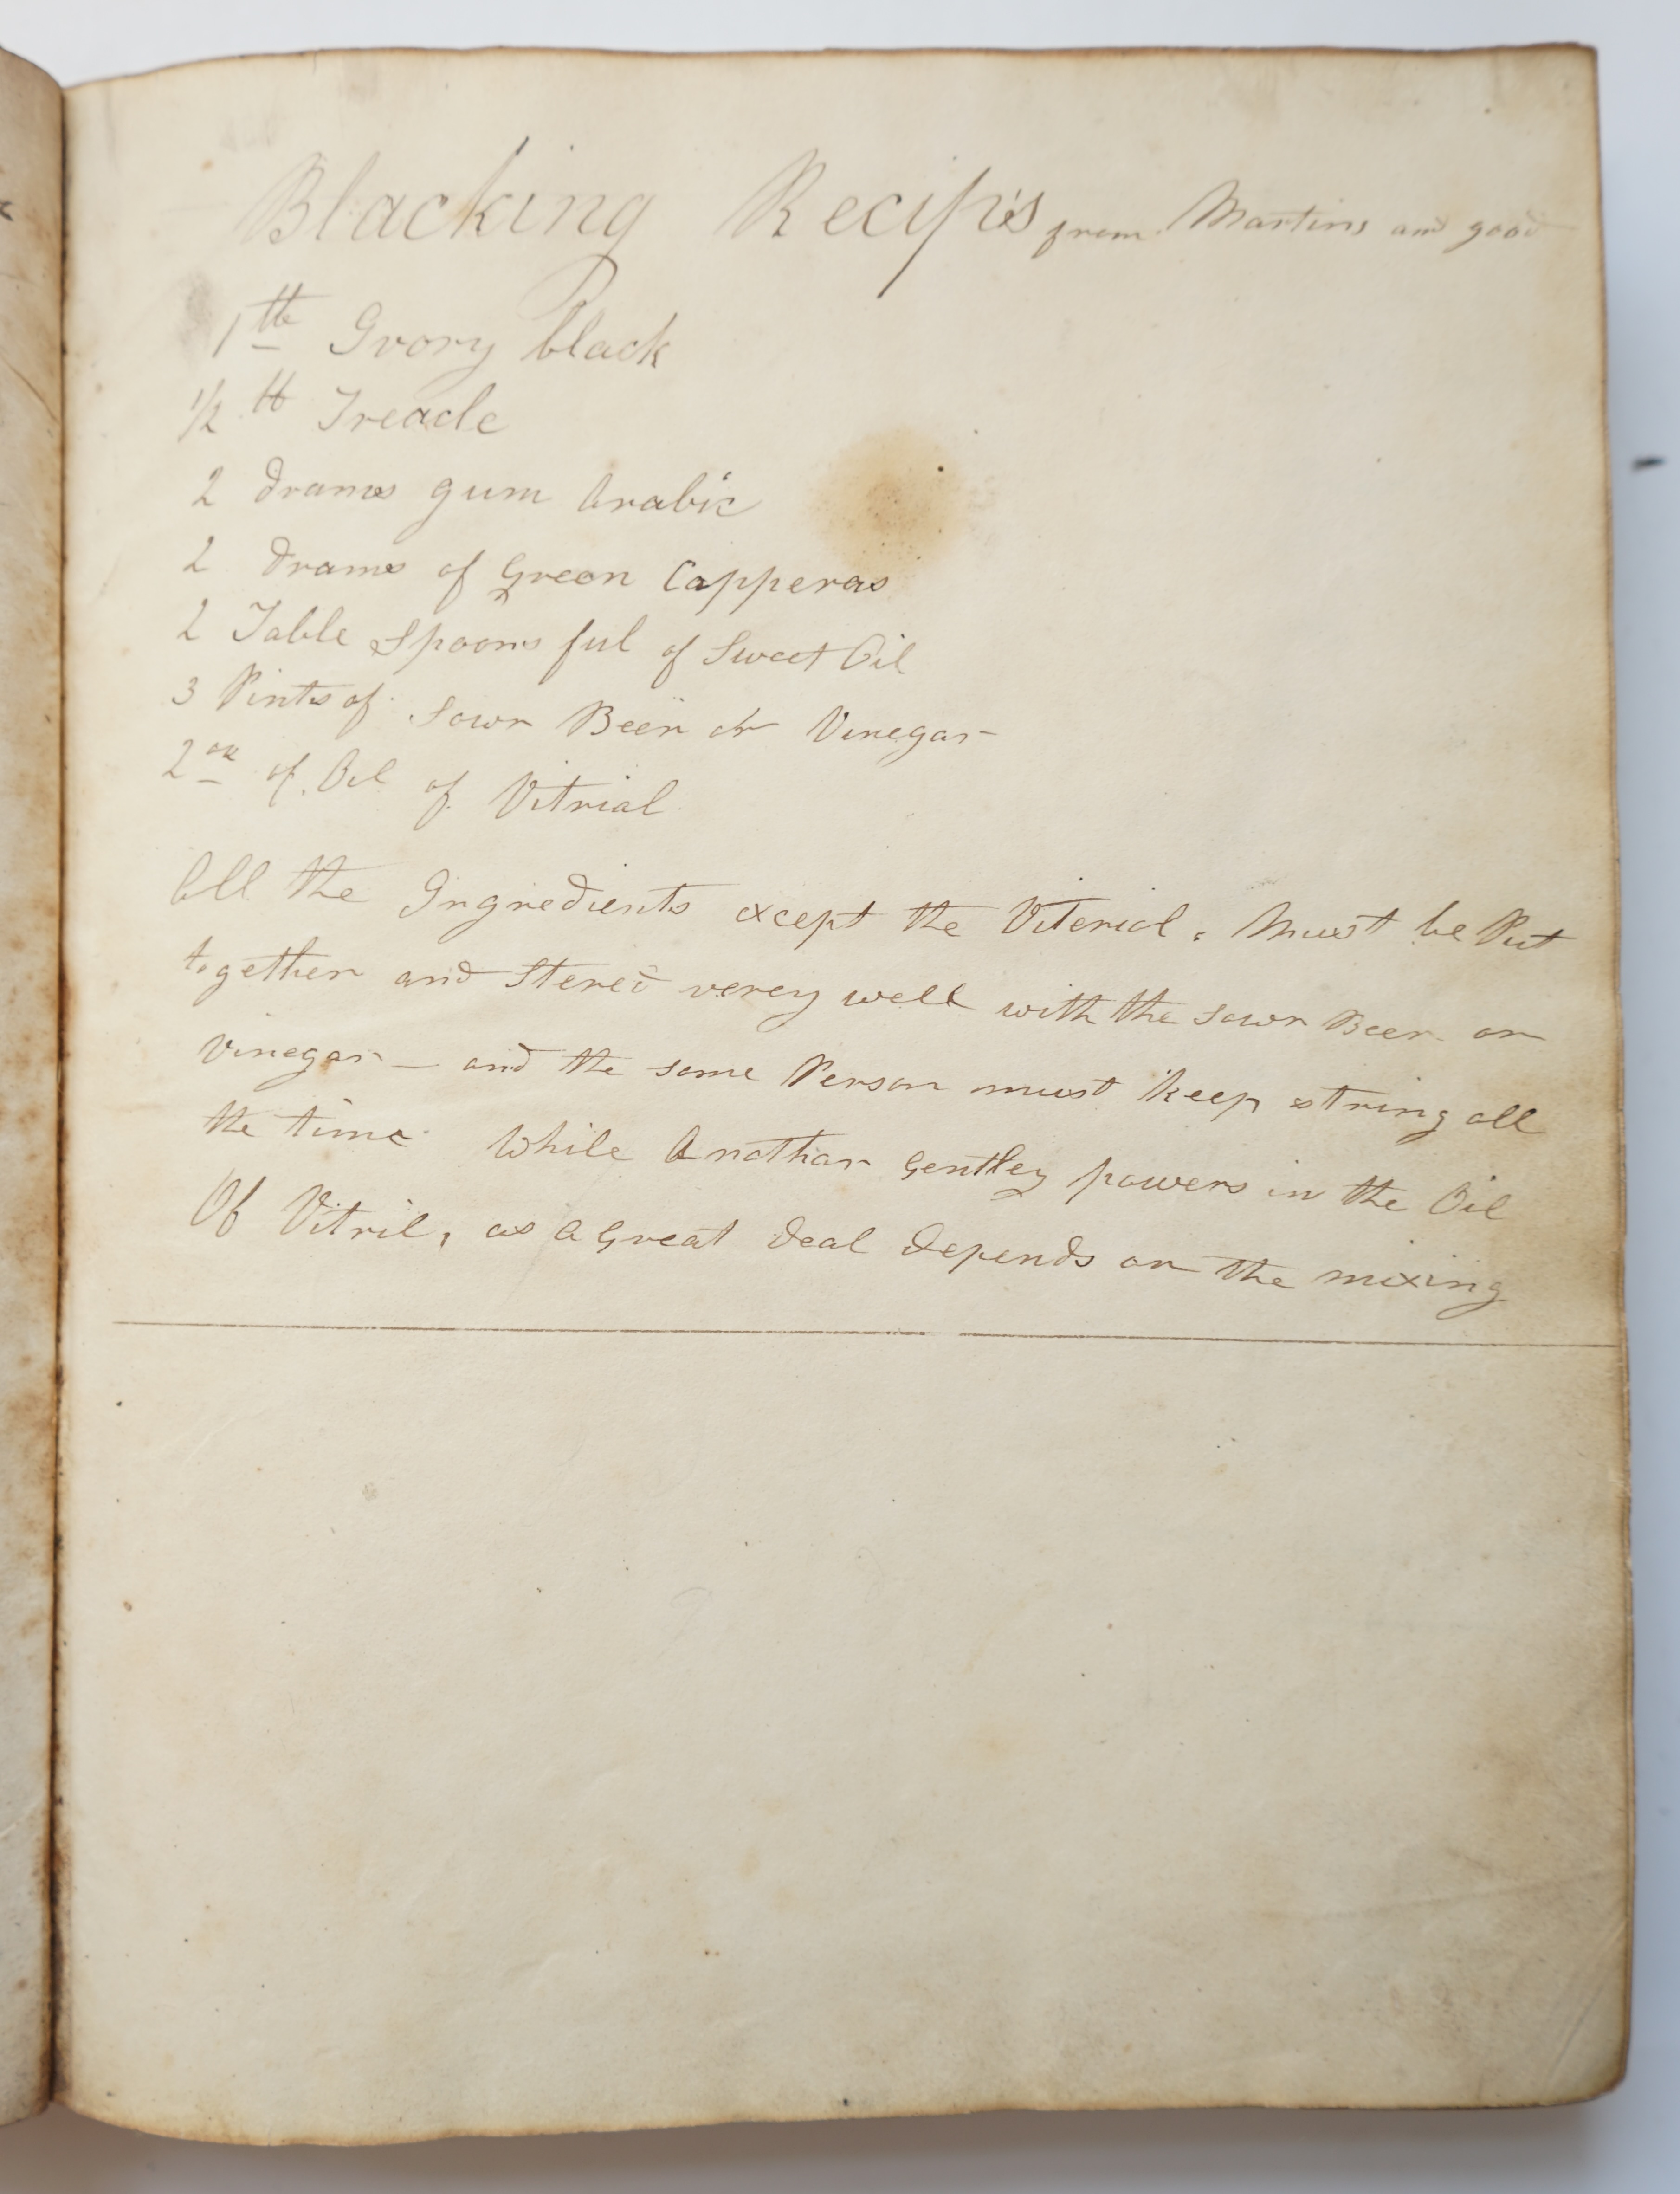 Blacking Recipes from Martins and good
1 lb Ivory black
1/2 lb Treacle
2 drams gum Arabic
2 drams of Green Capperas
2 Table Spoons ful of Sweet Oil
3 Pints of Sowr Beer or Vinegar
2 oz of Oil of Vitrial
All the Ingredients except the Viterial, Must be Put
together and Stered verey well with the sowr Beer or
Vinegar — and the same Person must keep string all
the time While Anothar Gentley powers in the Oil
Of Vitril, as a Great deal depends on the mixing